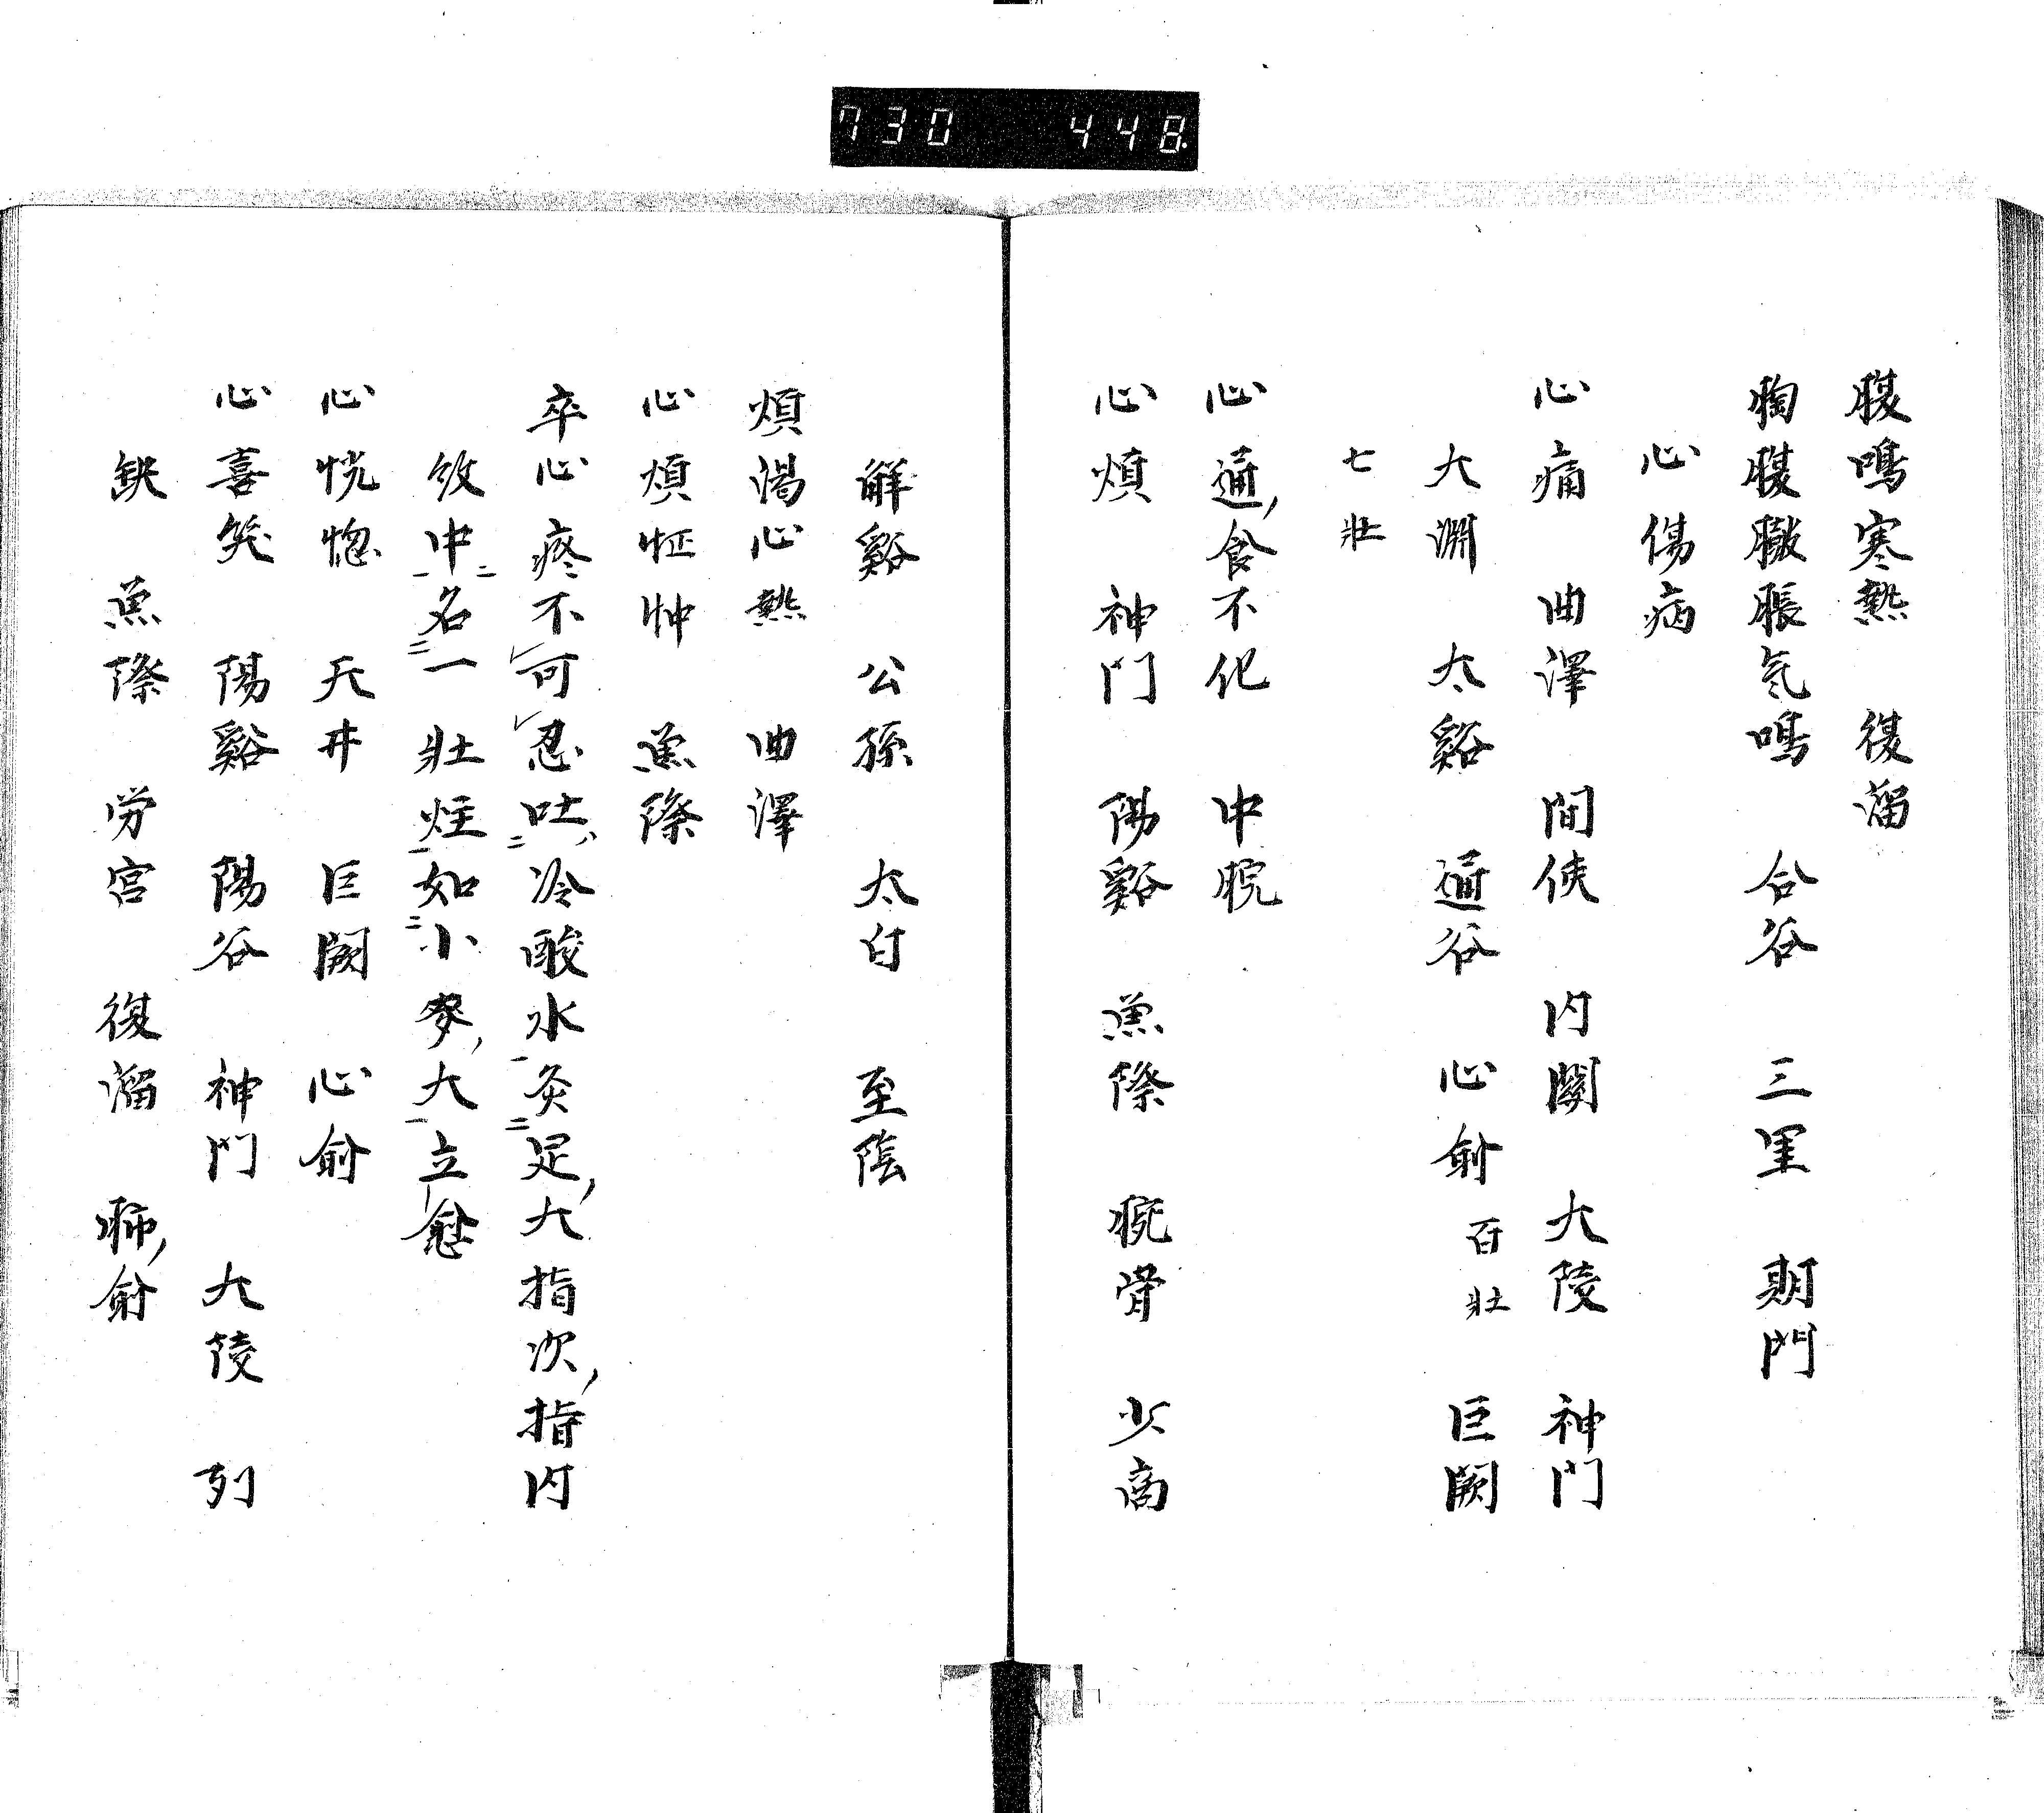 730 448.
腹鳴寒熱 復溜
胸腹膨脹気鳴 合谷 三里 期門
心傷病
心痛 曲澤 間使 内關 大陵 神門
大淵 太谿 通谷 心俞 百壮 巨闕
七壮
心通食不化 中脘
心煩 神門 陽谿 魚際 腕骨 少商
解谿 公孫 太白 至陰
煩渇心熱 曲澤
心煩怔忡 魚際
卒心疼不可忍吐冷酸水灸足大指次指内
紋中名一壮炷如小麥大立愈
心恍惚 天井 巨闕 心俞
心喜笑 陽谿 陽谷 神門 大陵 列
缺 魚際 労宮 復溜 肺俞